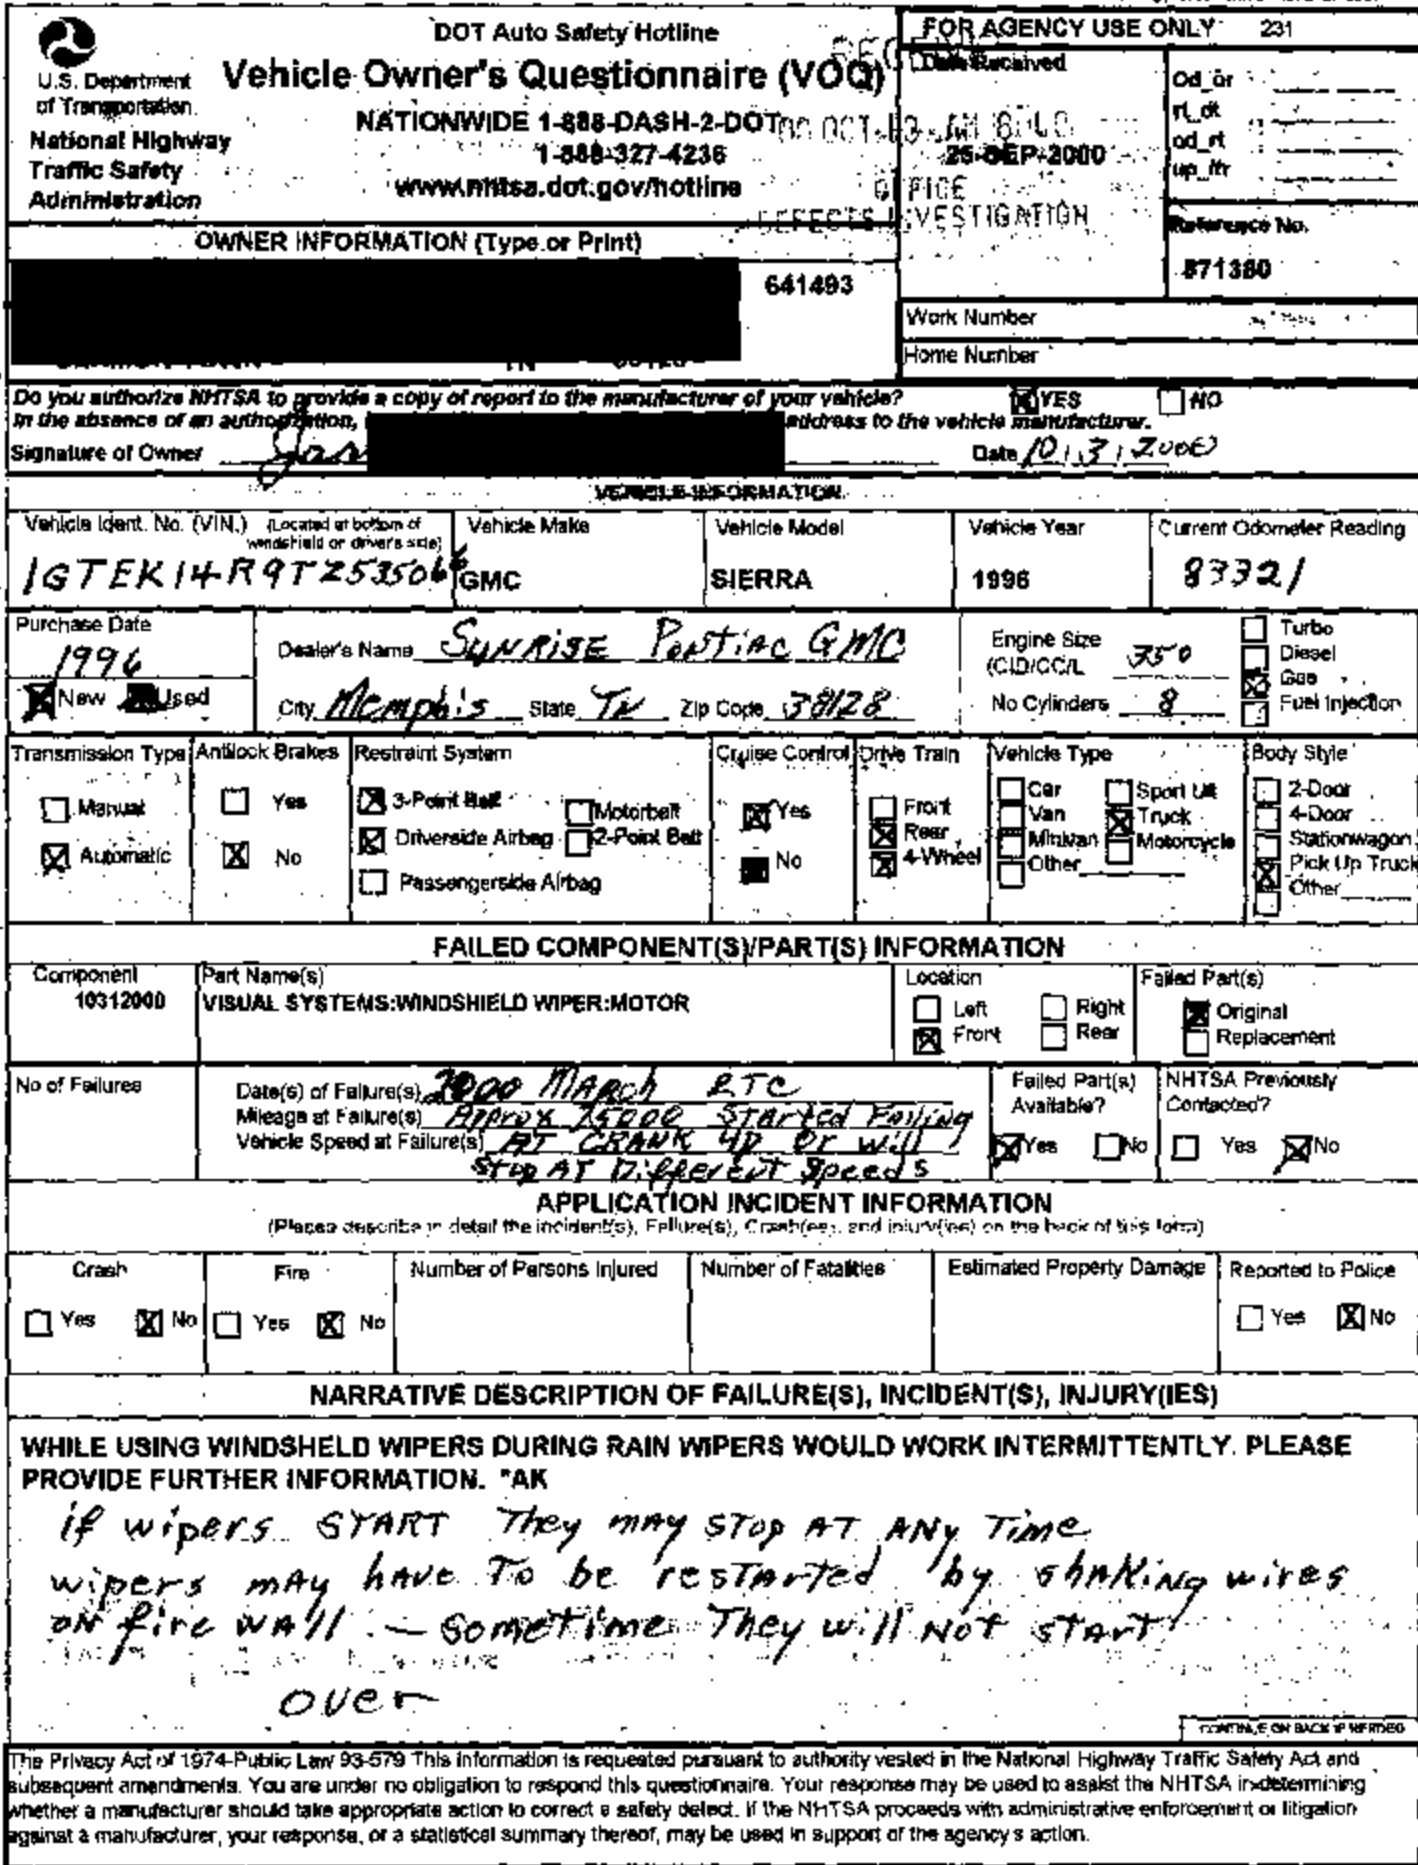 DOT Auto Safety Hotline
Vehicle Owner's Questionnaire (VOQ)
NATIONWIDE 1-888-DASH-2-DOT
1-888-327-4236
www.nhtsa.dot.gov/hotline
U.S. Department
of Transportation
National Highway
Traffic Safety
Administration
FOR AGENCY USE ONLY 231
Date Received
25-SEP-2000
OFFICE
DEFECTS INVESTIGATION
Od_or
rt_dt
od_rt
up_ltr
Reference No.
871380
OWNER INFORMATION (Type or Print)
641493
Work Number
Home Number
Do you authorize NHTSA to provide a copy of report to the manufacturer of your vehicle? YES NO
In the absence of an authorization, address to the vehicle manufacturer.
Signature of Owner Date 10/3/2000
VEHICLE INFORMATION
Vehicle Ident. No. (VIN.) (Located at bottom of
windshield on driver's side)
1GTEK14R9TZ535066
Vehicle Make
GMC
Vehicle Model
SIERRA
Vehicle Year
1996
Current Odometer Reading
83321
Purchase Date
1996
New Used
Dealer's Name SUNRISE PONTIAC GMC
City Memphis State TN Zip Code 38128
Engine Size
(CID/CC/L 350
No Cylinders 8
Turbo
Diesel
Gas
Fuel Injection
Transmission Type
Manual
Automatic
Antilock Brakes
Yes
No
Restraint System
3-Point Belt Motorbelt
Driverside Airbag 2-Point Belt
Passengerside Airbag
Cruise Control
Yes
No
Drive Train
Front
Rear
4-Wheel
Vehicle Type
Car Sport Utl
Van Truck
Minivan Motorcycle
Other
Body Style
2-Door
4-Door
Stationwagon
Pick Up Truck
Other
FAILED COMPONENT(S)/PART(S) INFORMATION
Component
10312000
Part Name(s)
VISUAL SYSTEMS:WINDSHIELD WIPER:MOTOR
Location
Left Right
Front Rear
Failed Part(s)
Original
Replacement
No of Failures
Date(s) of Failure(s) 2000 MARCh ETC
Mileage at Failure(s) Approx 75000 STArted FAiliNg
Vehicle Speed at Failure(s) AT CRANK UP Or will
STOP AT Different Speeds
Failed Part(s)
Available?
Yes No
NHTSA Previously
Contacted?
Yes No
APPLICATION INCIDENT INFORMATION
(Please describe in detail the incident(s), Failure(s), Crash(es), and injury(ies) on the back of this form)
Crash
Yes No
Fire
Yes No
Number of Persons Injured
Number of Fatalities
Estimated Property Damage
Reported to Police
Yes No
NARRATIVE DESCRIPTION OF FAILURE(S), INCIDENT(S), INJURY(IES)
WHILE USING WINDSHELD WIPERS DURING RAIN WIPERS WOULD WORK INTERMITTENTLY. PLEASE
PROVIDE FURTHER INFORMATION. *AK
if wipers START They mAy STOP AT ANy Time
wipers mAy hAve To be resTArTed by shAKiNg wires
oN fire wAll - Sometime They will Not sTArT
over
CONTINUE ON BACK IF NEEDED
The Privacy Act of 1974-Public Law 93-579 This information is requested pursuant to authority vested in the National Highway Traffic Safety Act and
subsequent amendments. You are under no obligation to respond this questionnaire. Your response may be used to assist the NHTSA in determining
whether a manufacturer should take appropriate action to correct a safety defect. If the NHTSA proceeds with administrative enforcement or litigation
against a manufacturer, your response, or a statistical summary thereof, may be used in support of the agency's action.